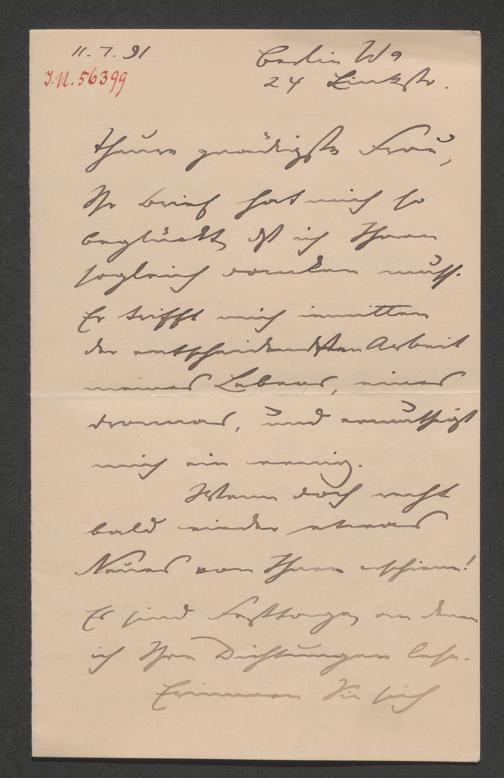 11.7.91
Berlin W9
24 Linkstr.
J.N. 56399
Theure gnädigste Frau,
Ihr Brief hat mich so
beglückt, dß ich Ihnen
sogleich danken muß.
Er trifft mich inmitten
der entscheidendsten Arbeit
meines Lebens, eines
Dramas, und ermuthigt
mich ein wenig.
Wenn doch recht
bald wieder etwas
Neues von Ihnen erschiene!
Es sind Festtage, an denen
ich Ihre Dichtungen lese.
Erinnern Sie sich